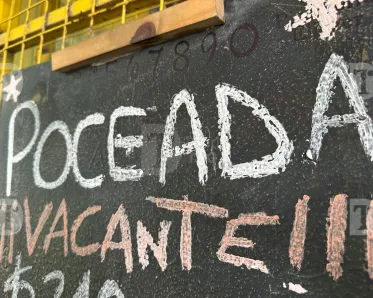 7890
POCEADA
¡VACANTE!!!
$